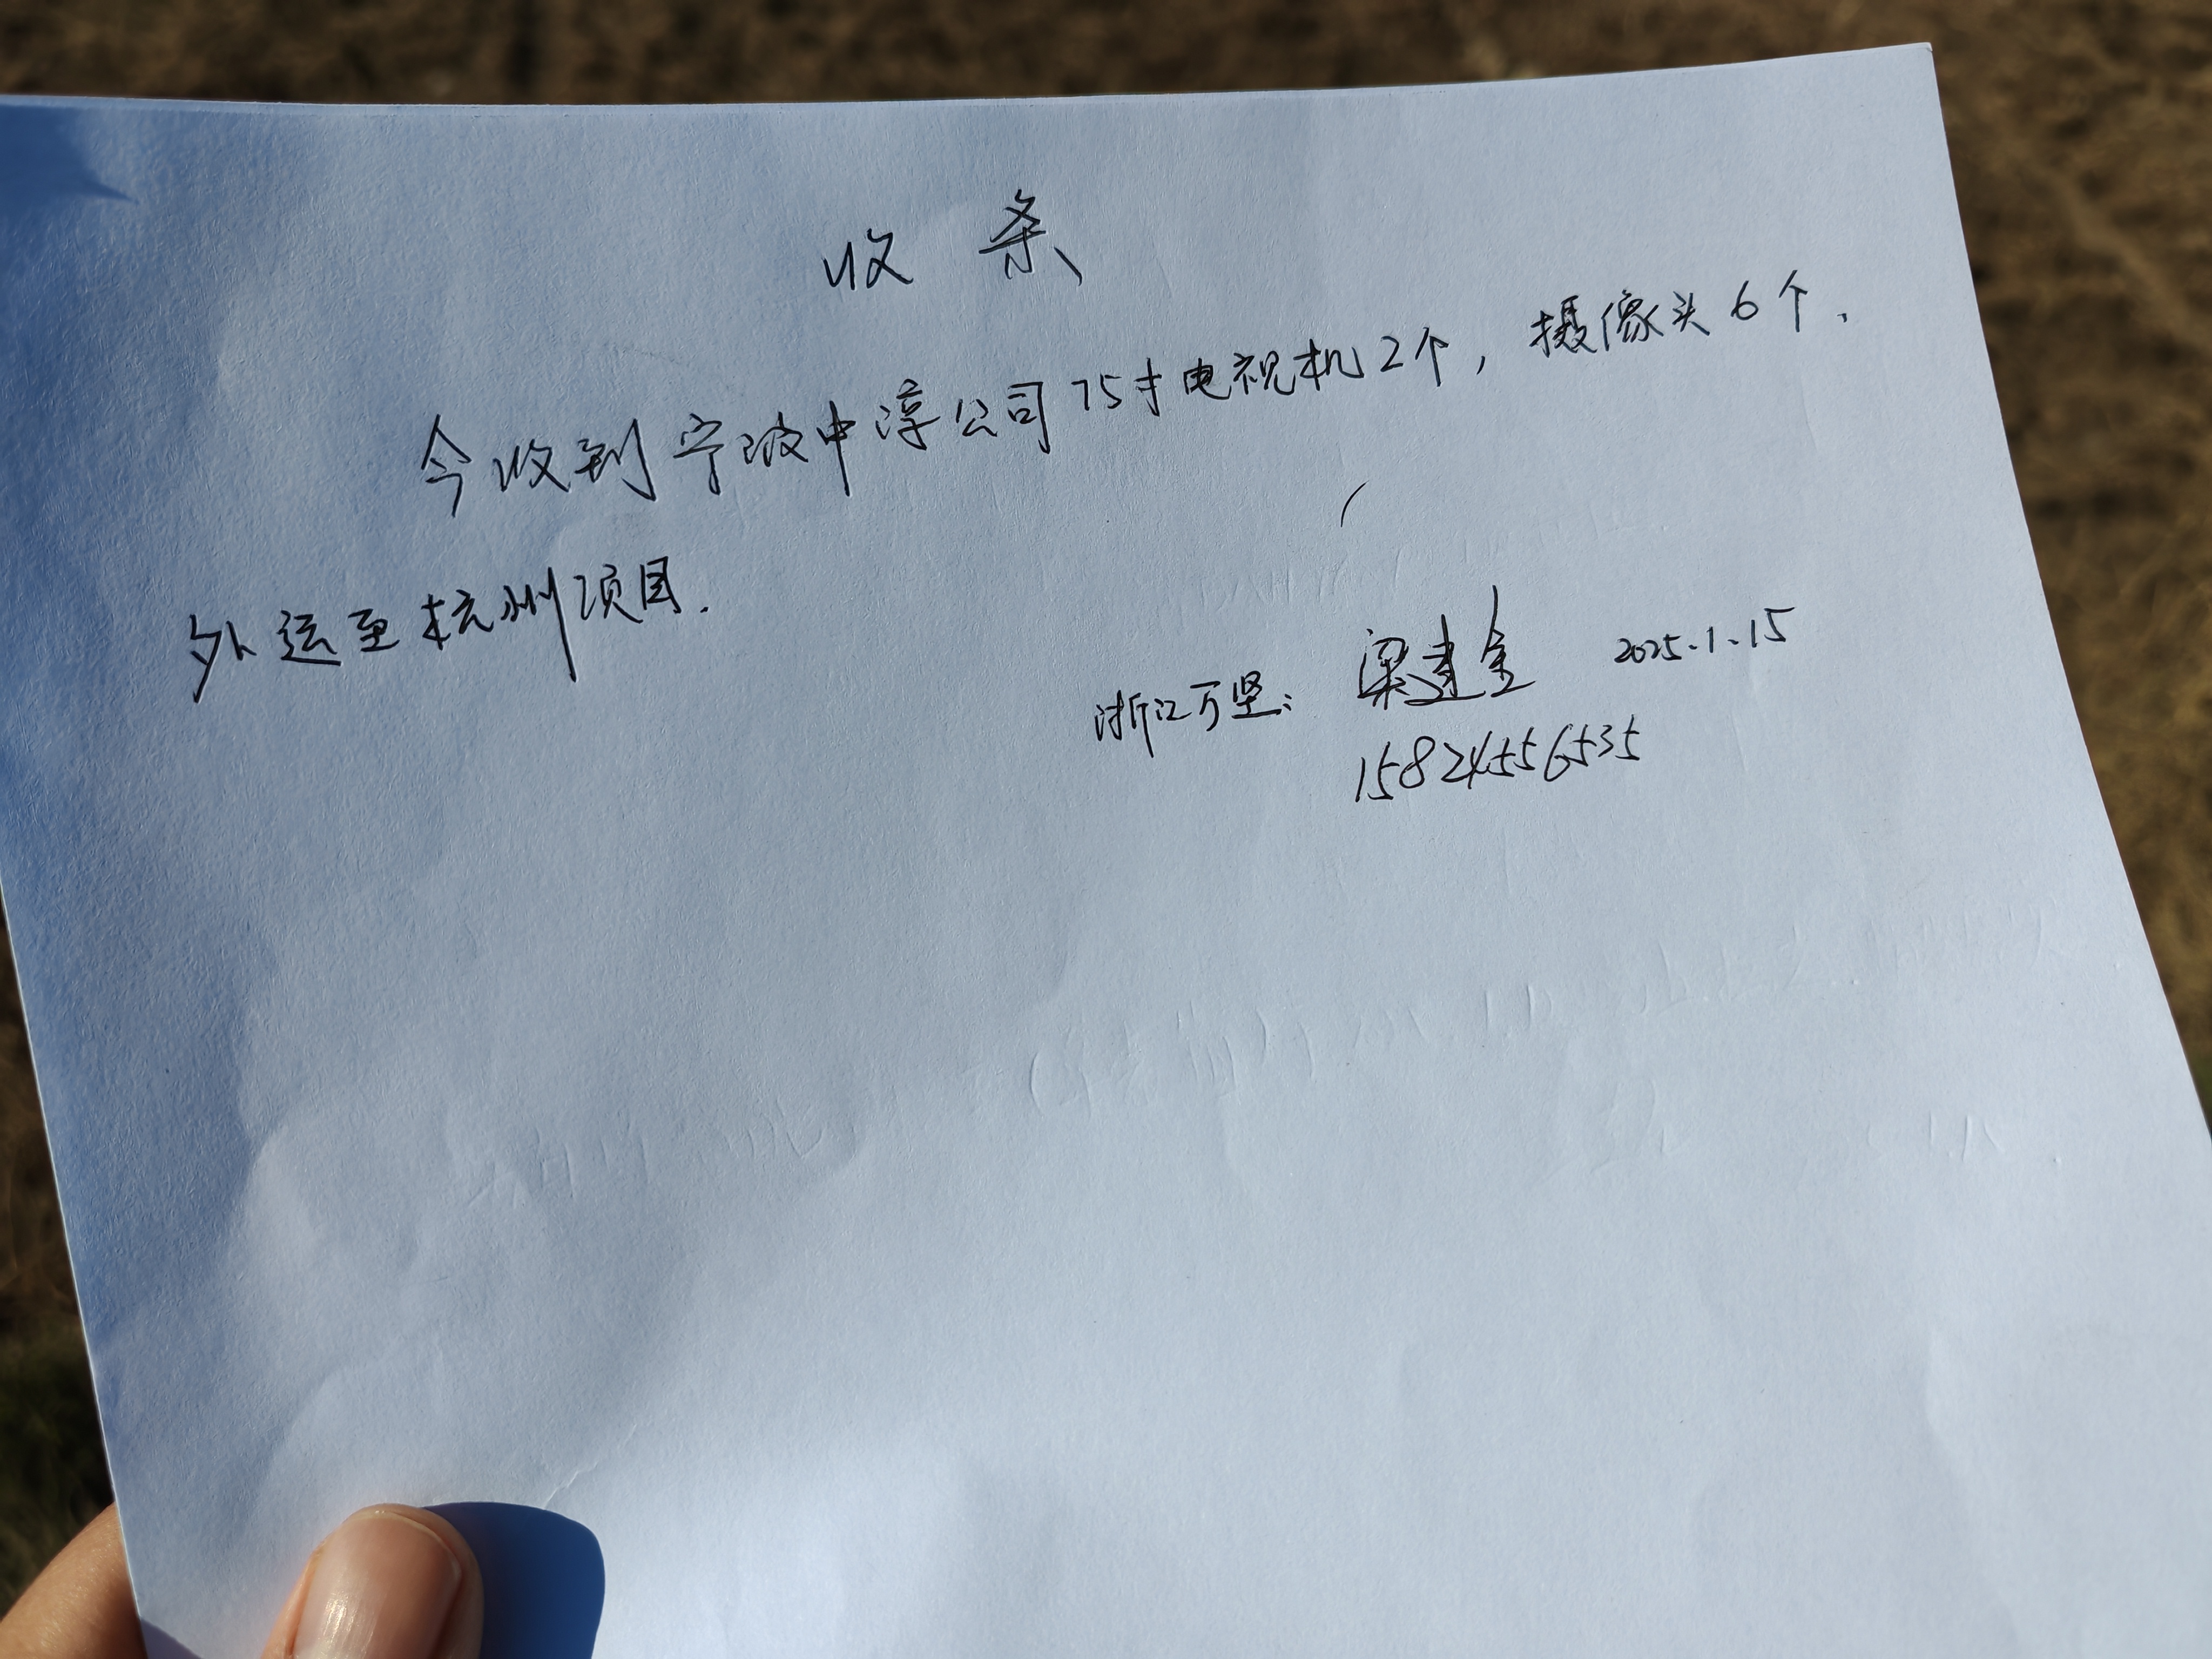 收条
今收到宁波中淳公司75寸电视机2个，摄像头6个.
外运至杭州项目.
浙江万坚: 梁建金 2025.1.15
15824556535